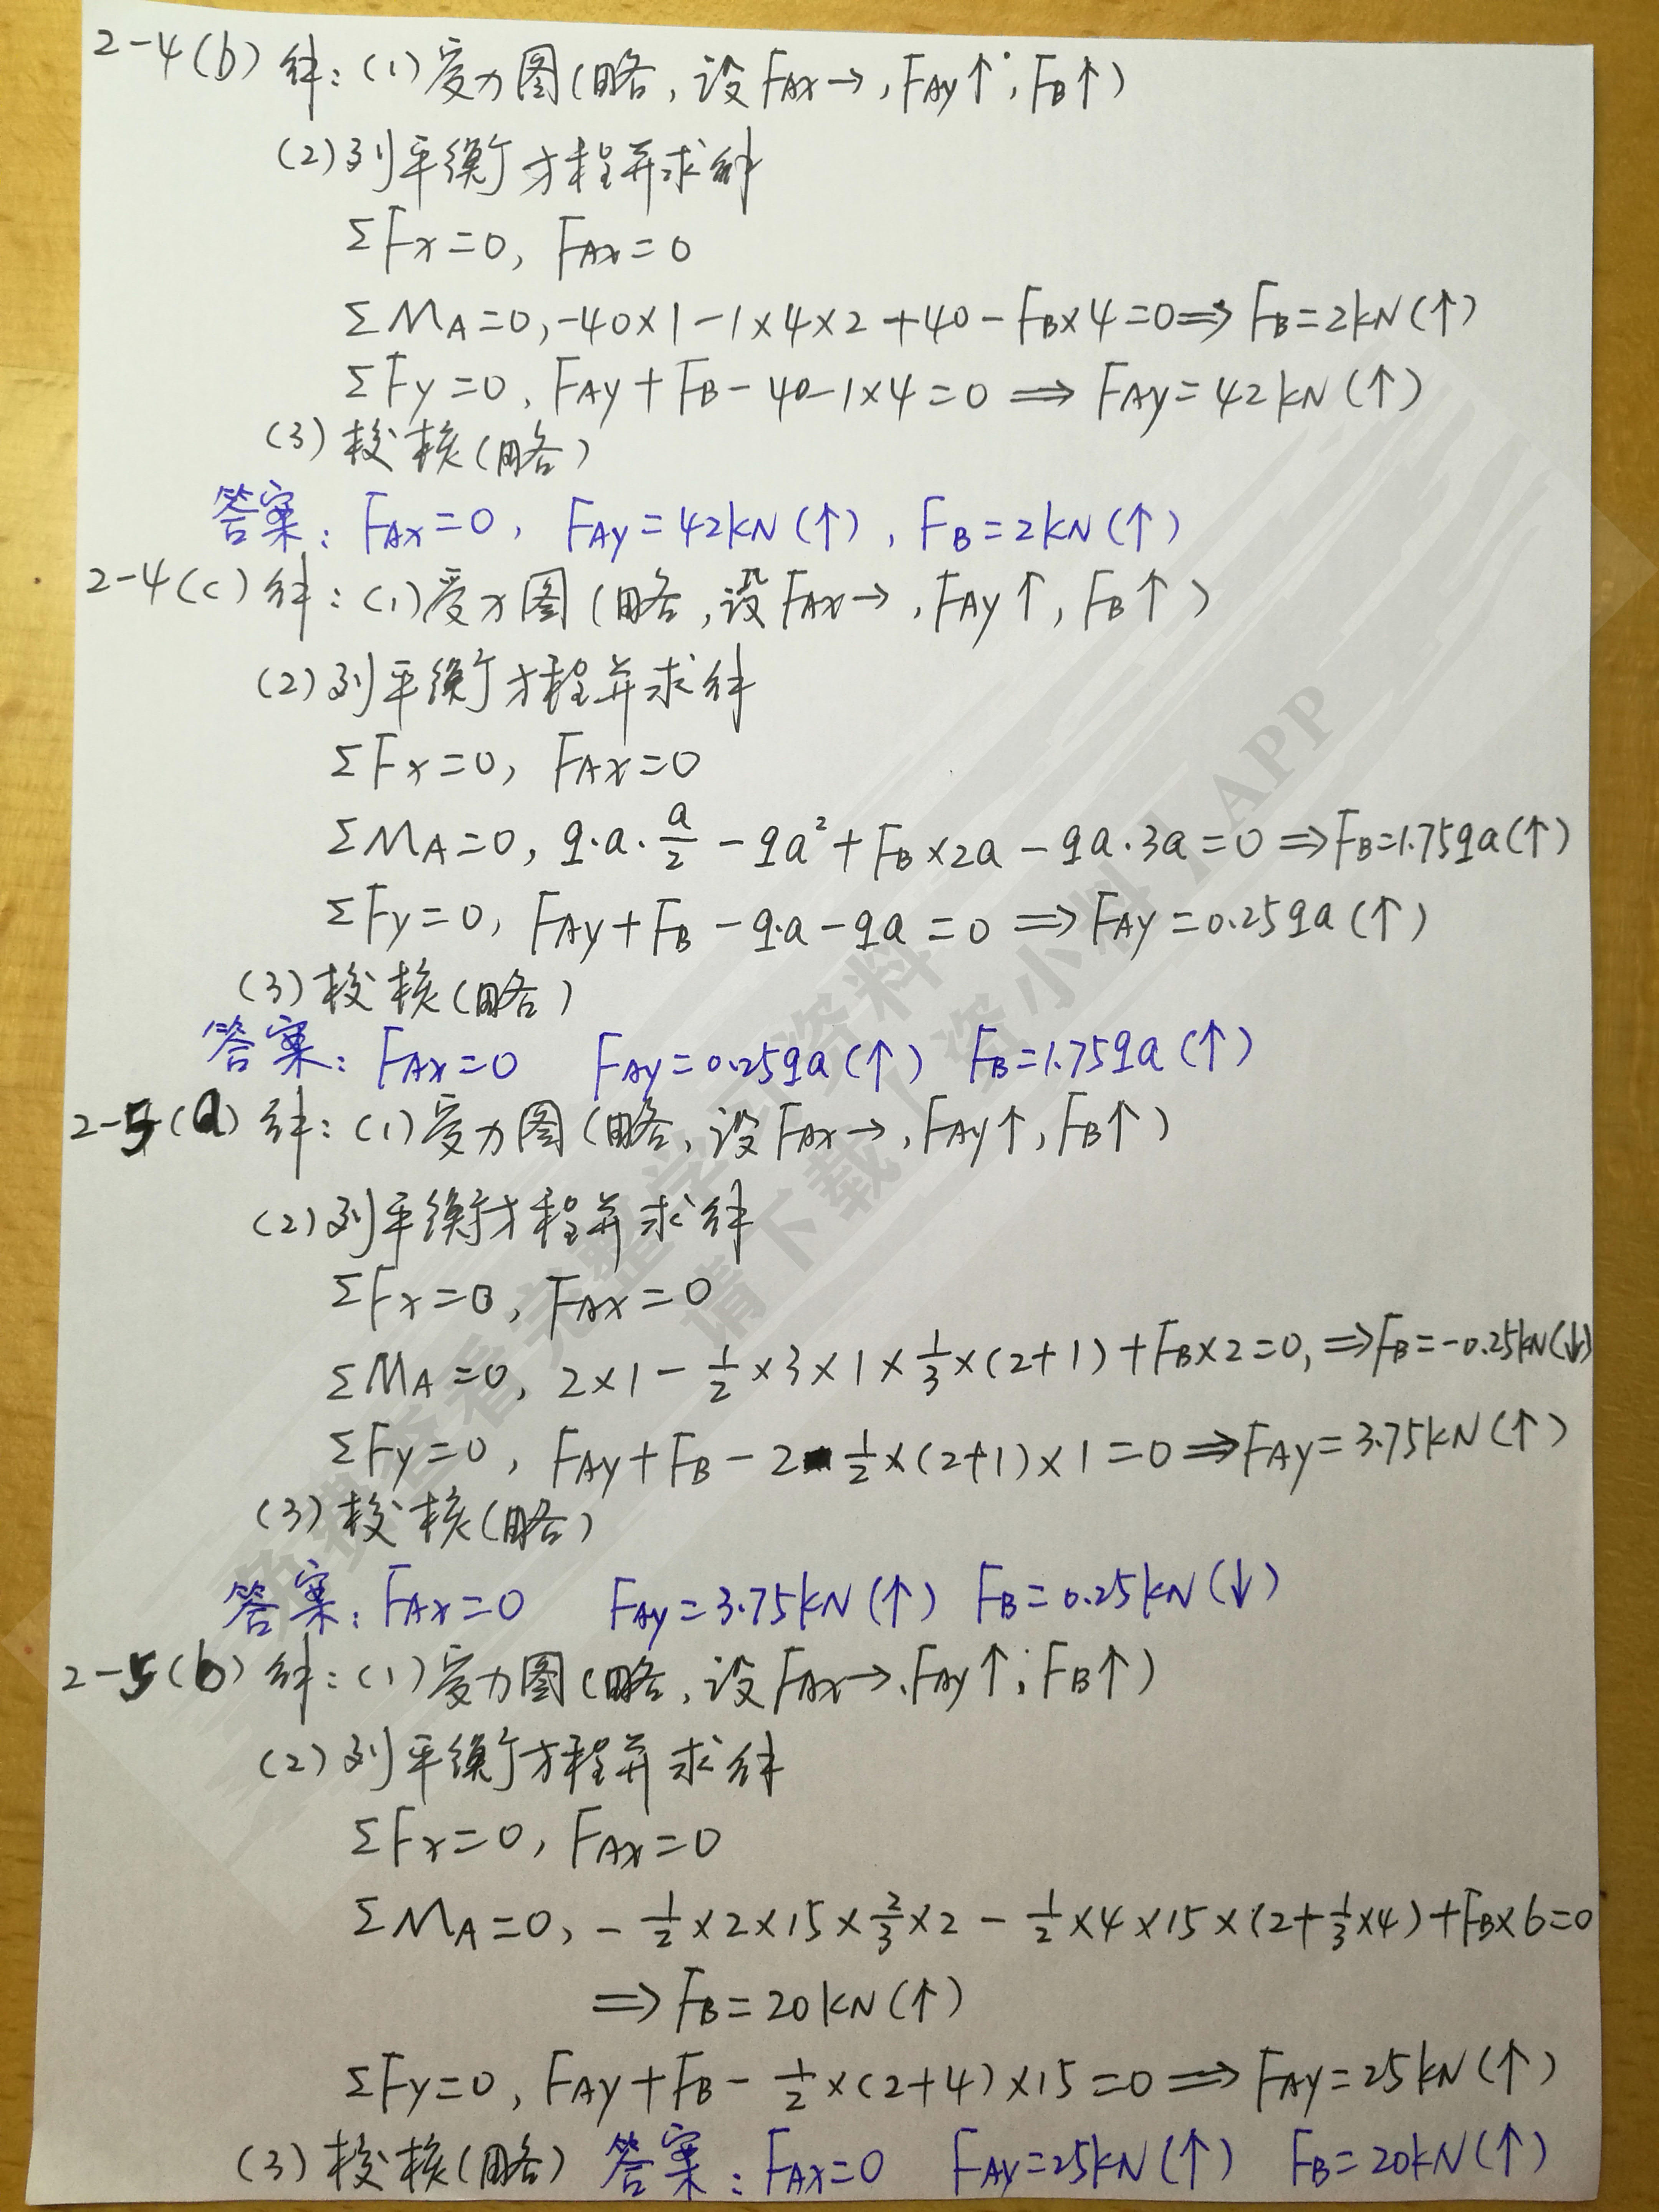 2-4(b) 解：(1)受力图(略，设FAx→，FAy↑，FB↑)
(2)列平衡方程并求解
ΣFx=0，FAx=0
ΣMA=0，-40×1-1×4×2+40-FB×4=0⇒FB=2kN(↑)
ΣFy=0，FAy+FB-40-1×4=0⇒FAy=42kN(↑)
(3)校核(略)
答案：FAx=0，FAy=42kN(↑)，FB=2kN(↑)
2-4(c) 解：(1)受力图(略，设FAx→，FAy↑，FB↑)
(2)列平衡方程并求解
ΣFx=0，FAx=0
ΣMA=0，q·a·a/2-qa²+FB×2a-qa·3a=0⇒FB=1.75qa(↑)
ΣFy=0，FAy+FB-q·a-qa=0⇒FAy=0.25qa(↑)
(3)校核(略)
答案：FAx=0 FAy=0.25qa(↑) FB=1.75qa(↑)
2-5(a) 解：(1)受力图(略，设FAx→，FAy↑，FB↑)
(2)列平衡方程并求解
ΣFx=0，FAx=0
ΣMA=0，2×1-1/2×3×1×1/3×(2+1)+FB×2=0，⇒FB=-0.25kN(↓)
ΣFy=0，FAy+FB-2-1/2×(2+1)×1=0⇒FAy=3.75kN(↑)
(3)校核(略)
答案：FAx=0 FAy=3.75kN(↑) FB=0.25kN(↓)
2-5(b) 解：(1)受力图(略，设FAx→，FAy↑，FB↑)
(2)列平衡方程并求解
ΣFx=0，FAx=0
ΣMA=0，-1/2×2×15×2/3×2-1/2×4×15×(2+1/3×4)+FB×6=0
⇒FB=20kN(↑)
ΣFy=0，FAy+FB-1/2×(2+4)×15=0⇒FAy=25kN(↑)
(3)校核(略) 答案：FAx=0 FAy=25kN(↑) FB=20kN(↑)
免费查看完整学习资料
请下载 资小料 APP